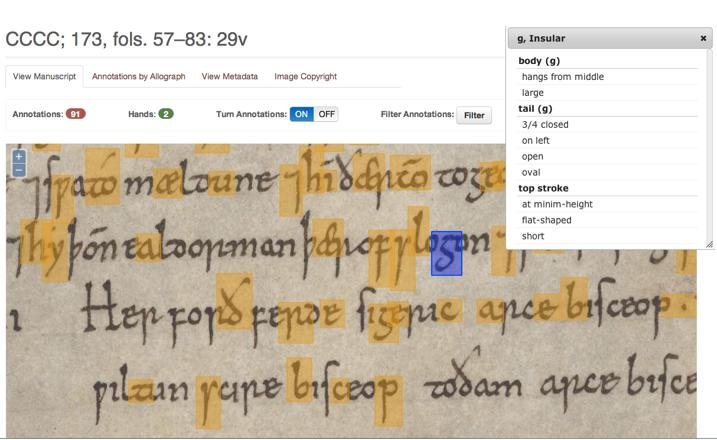 CCCC; 173, fols. 57–83: 29v
View Manuscript Annotations by Allograph View Metadata Image Copyright
Annotations: 91 Hands: 2 Turn Annotations: ON OFF Filter Annotations: Filter
g, Insular ×
body (g)
hangs from middle
large
tail (g)
3/4 closed
on left
open
oval
top stroke
at minim-height
flat-shaped
short
+
−
⁊sƿa to mældune ⁊hī ðær cō toge
⁊hy þon̄ ealdorman þær ofslogon
Her forðferde sigeric arcebisceop ·
ƿiltunscire bisceop toðam arcebisce